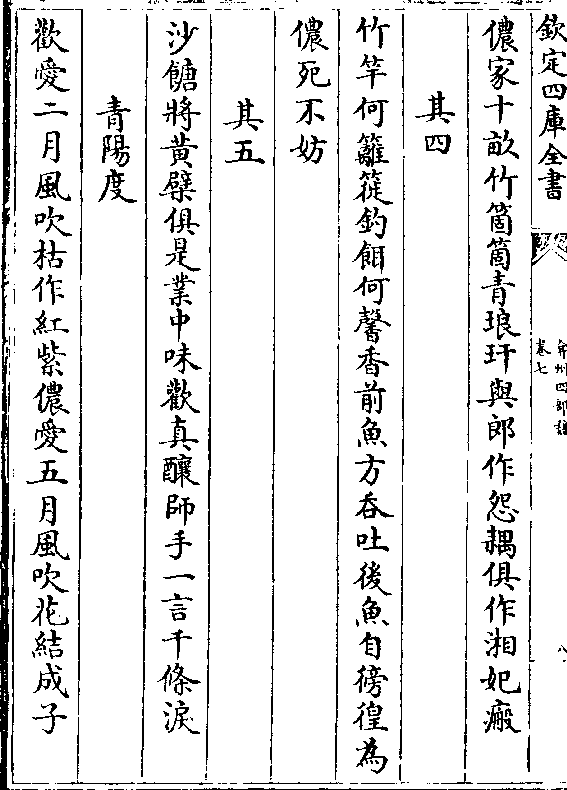 欽定四庫全書
弇州四部稿
卷七
八
儂家十畝竹箇箇青琅玕與郎作怨耦俱作湘妃瘢
其四
竹竿何籬簁釣餌何馨香前魚方吞吐後魚自徬徨為
儂死不妨
其五
沙餹將黃檗俱是業中味歡真釀師手一言千條淚
青陽度
歡愛二月風吹枯作紅紫儂愛五月風吹花結成子